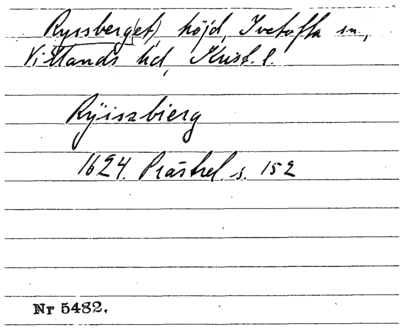 Ryssberg(et) höjd, Ivetofta sn,
Villands hd, Krist. l.
Rÿiszbierg
1624. Prästrel. s. 152
Nr 5482.